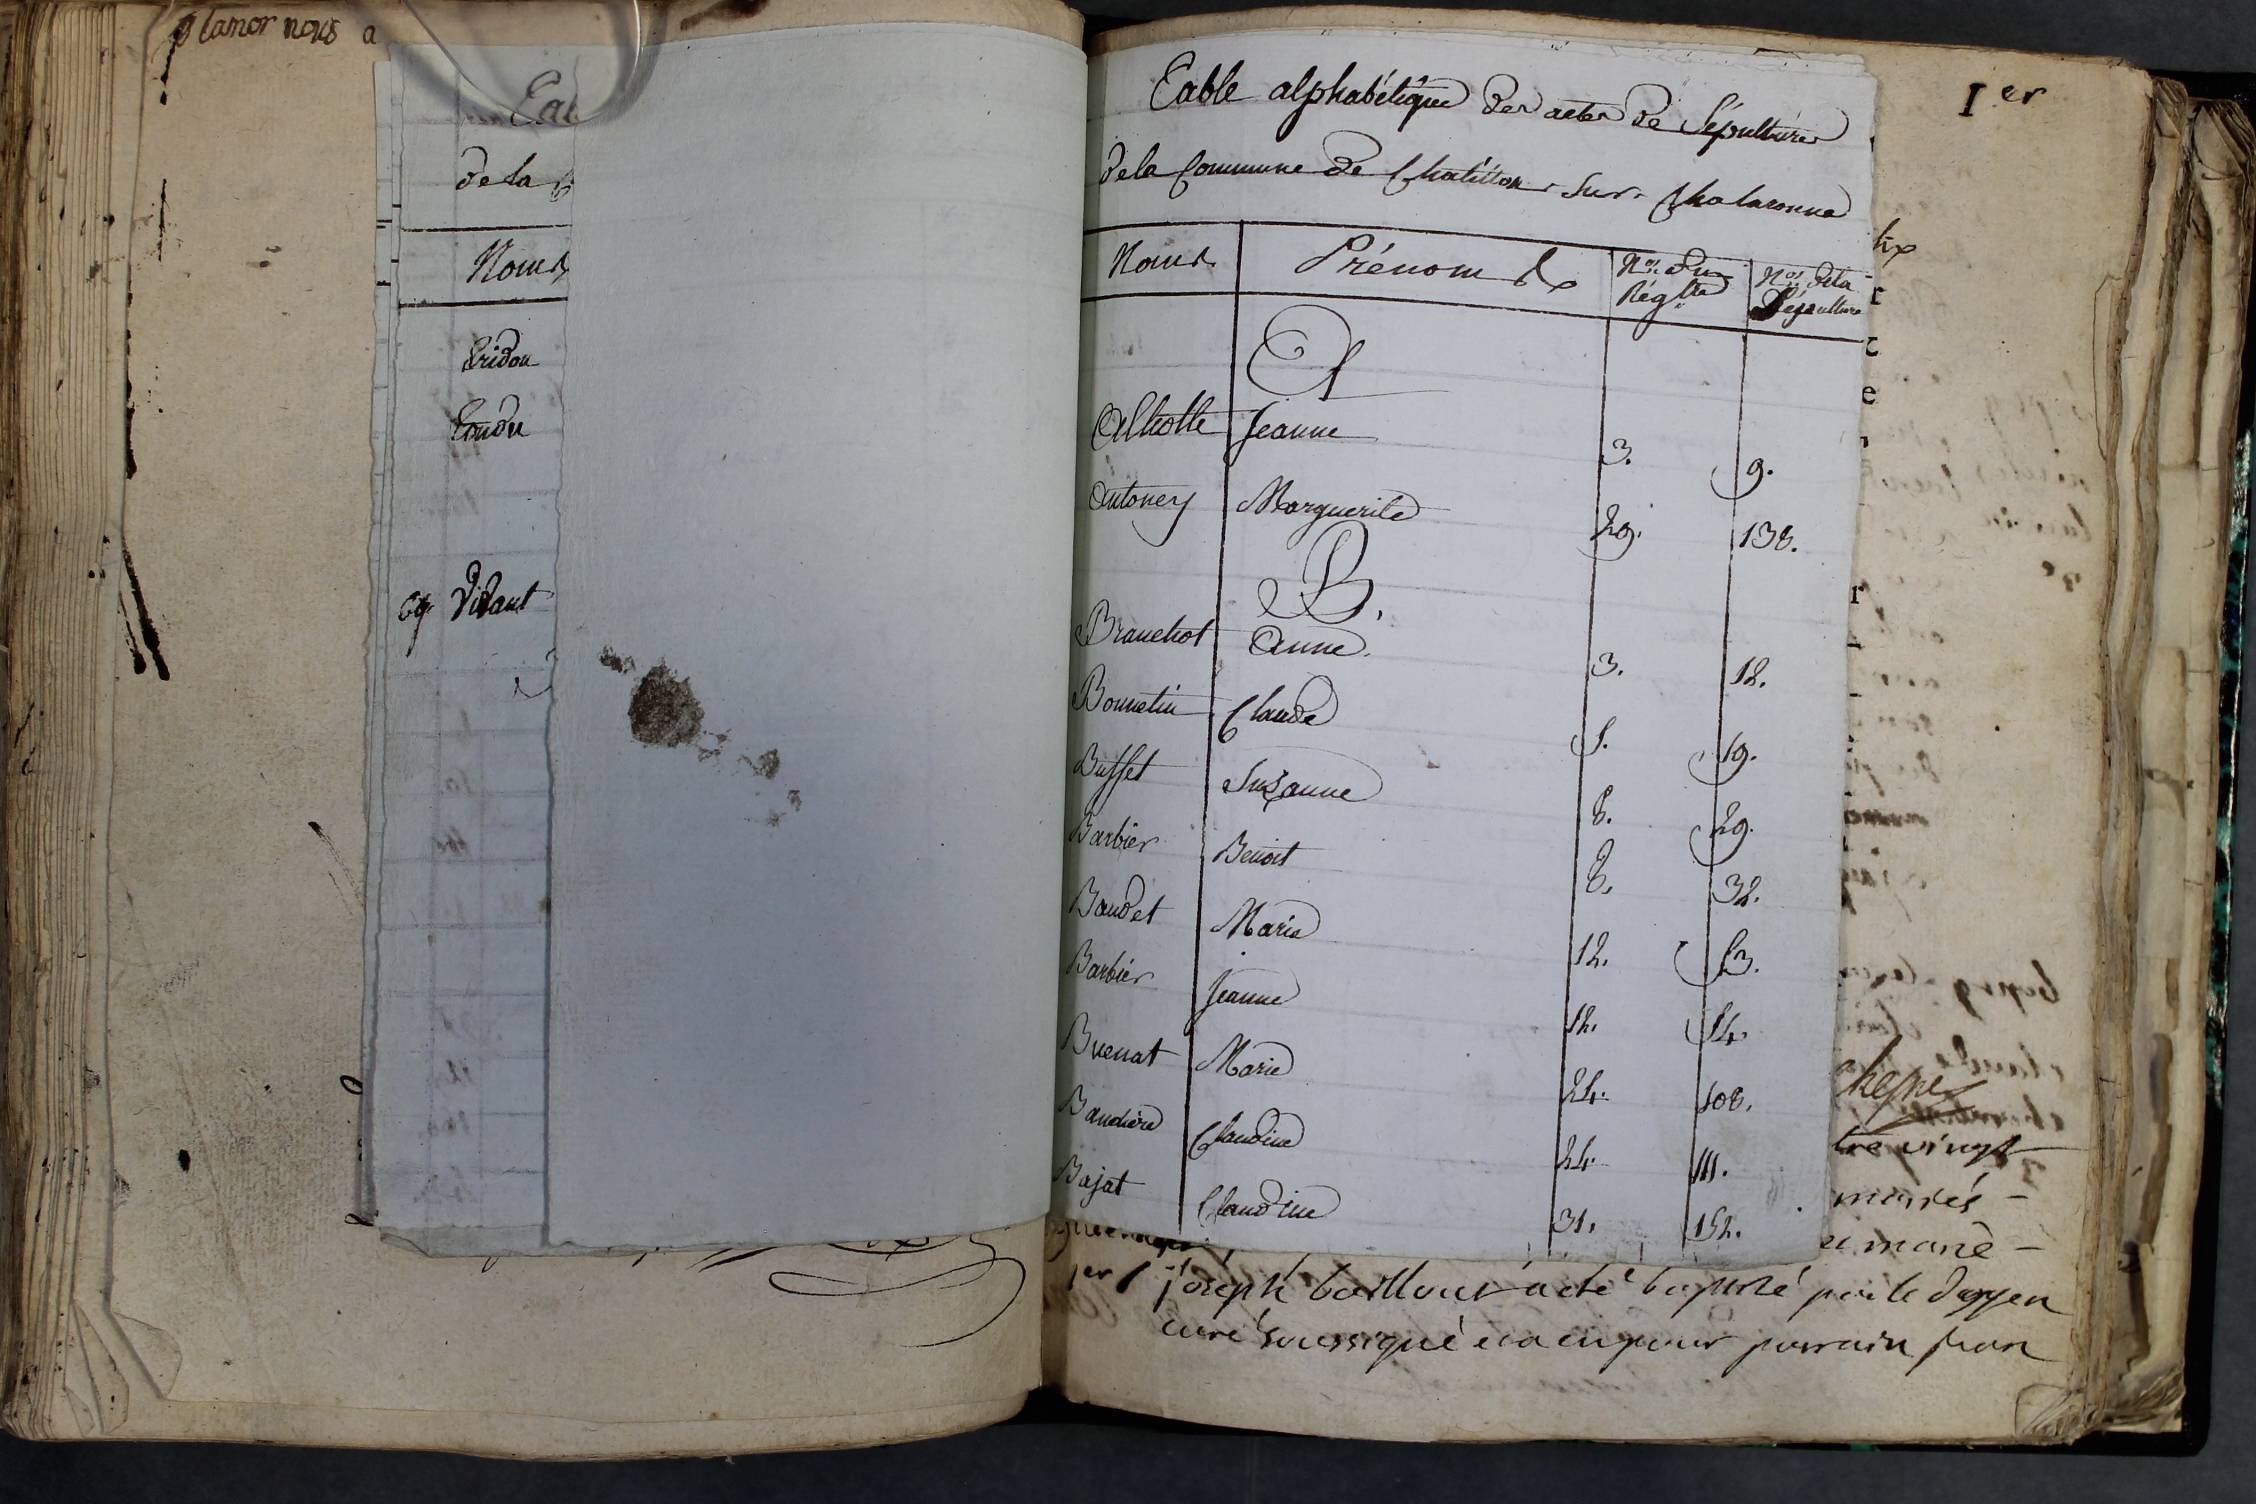 glanor nous a
Tab
de la
Noms
Tridon
Tondu
Vidant
Table alphabétique des actes de Sépultures
de la Commune de Chatillon-Sur-Chalaronne
Noms Prénoms Nos. du Régtre Nos. de la Sépulture
A
Alhotte Jeanne 3. 9.
Antoney Marguerite 29. 138.
B.
Branchot Anne. 3. 12.
Bonnetin Claude 5. 19.
Buffet Suzanne 8. 29.
Barbier Benoit 8. 32.
Baudet Marie 12. 53.
Barbier Jeanne 12. 54.
Buenat Marie 24. 108.
Baudière Claudine 24. 111.
Bajat Claudine 31. 152.
Ier
tre vingt
mariés -
joseph baillour a eté baptizé par le doyen
curé soussigné et a eu pour parrain fran